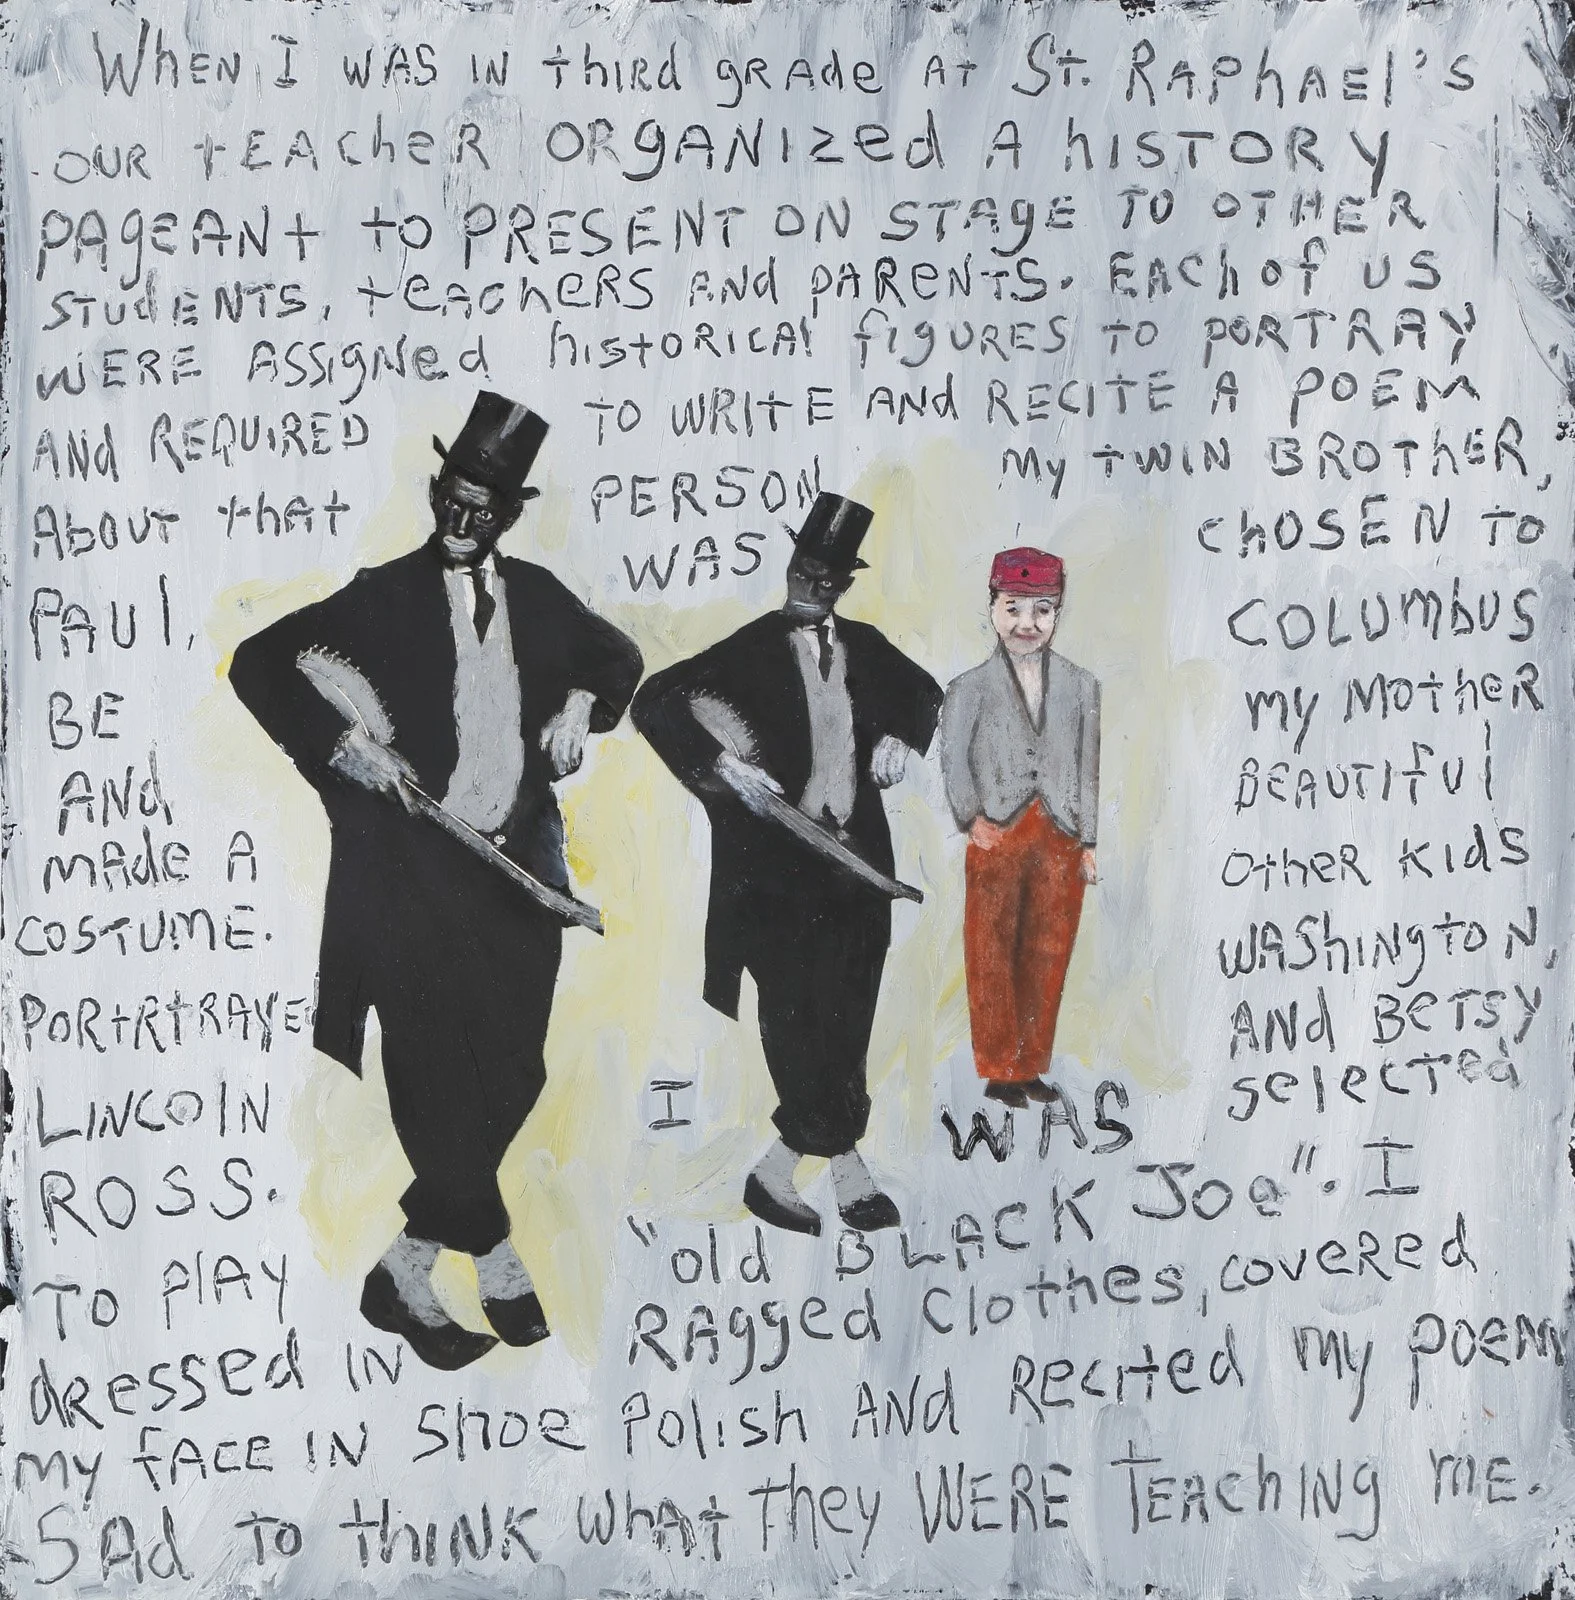 WhEN I WAS IN third grAde At St. RAPhAEl's
OUR tEAcheR ORgANIzed A hISTORY
PAgEANt to PRESENT ON STAgE TO OTHER
STUdENTS, teAcheRS ANd PARENTS. EACh of US
WERE ASSIgNed hiStORICAl fIgURES to PORTRAY
ANd REQUIRED TO WRItE ANd RECItE A POEM
AboUT that PERSON My tWIN BROthER,
PAUl, WAS ChOSEN To
BE COLUMbUS
ANd my MotheR
mAde A BEAUTIfUl
COSTUME. OtheR KIdS
PORtRtRAYE WAShINgtoN,
LINCOlN ANd BeTSy
ROSS. I WAS selected
TO PlAy "Old BLACK JOe". I
dREssed IN RAgged ClotheS, coveRed
my fACE IN Shoe PolISh ANd Recited my POEM
SAd TO thINK WhAt They WERE TEAChINg ME.